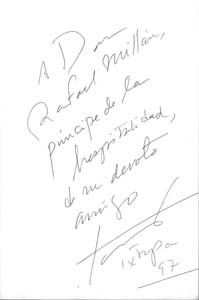 A Don
Rafael Millán,
príncipe de la
hospitalidad,
de su devoto
amigo
Ixtapa
97